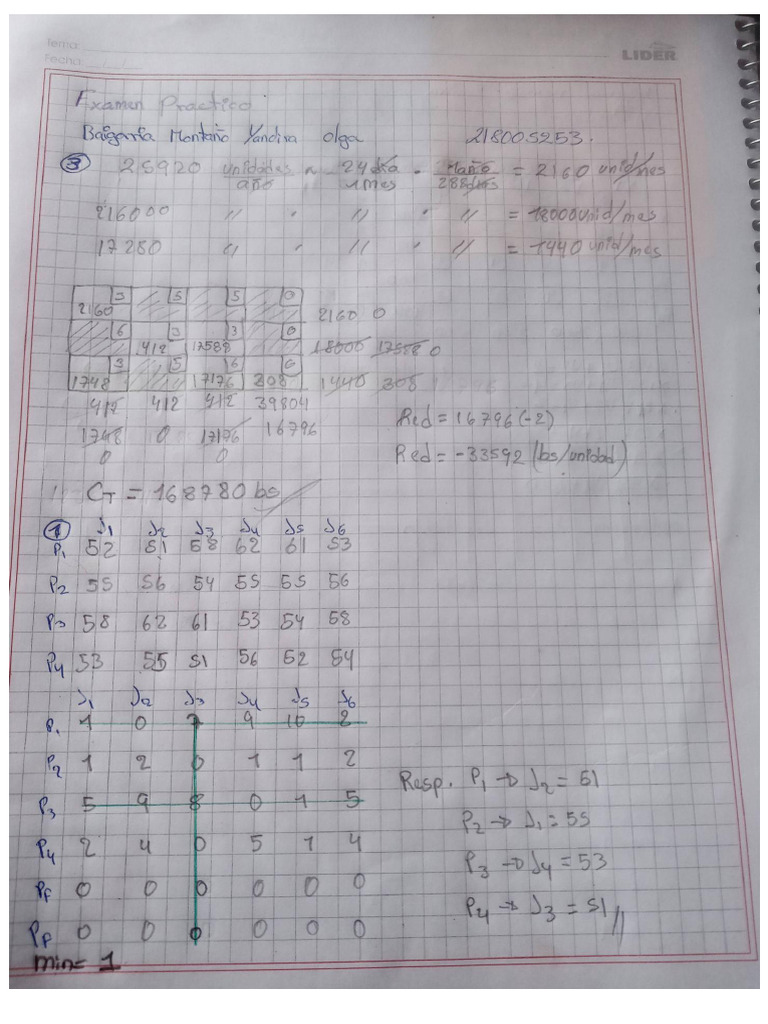 Tema:
Fecha: / /
LIDER
Examen Practico
Baigarria Montaño Yandira Olga 218005253.
③ 25920 unidades/año * 24 dia/1 mes * 1 año/288 dias = 2160 unid/mes
216000 " · " · " = 18000 unid/mes
17280 " · " · " = 1440 unid/mes
3 5 5 0
2160 2160 0
6 3 3 0
412 17588 18000 17588 0
3 5 6 0
1748 17176 308 1440 308
412 412 412 39804
1748 0 17176 16796
0 0
Red = 16796 (-2)
Red = -33592 (bs/unidad)
CT = 168780 bs
① J1 J2 J3 J4 J5 J6
P1 52 51 58 62 61 53
P2 55 56 54 55 55 56
P3 58 62 61 53 54 58
P4 53 55 51 56 52 54
J1 J2 J3 J4 J5 J6
P1 1 0 7 9 10 2
P2 1 2 0 1 1 2
P3 5 9 8 0 1 5
P4 2 4 0 5 1 4
Pf 0 0 0 0 0 0
Pf 0 0 0 0 0 0
min= 1
Resp. P1 → J2 = 51
P2 → J1 = 55
P3 → J4 = 53
P4 → J3 = 51 //